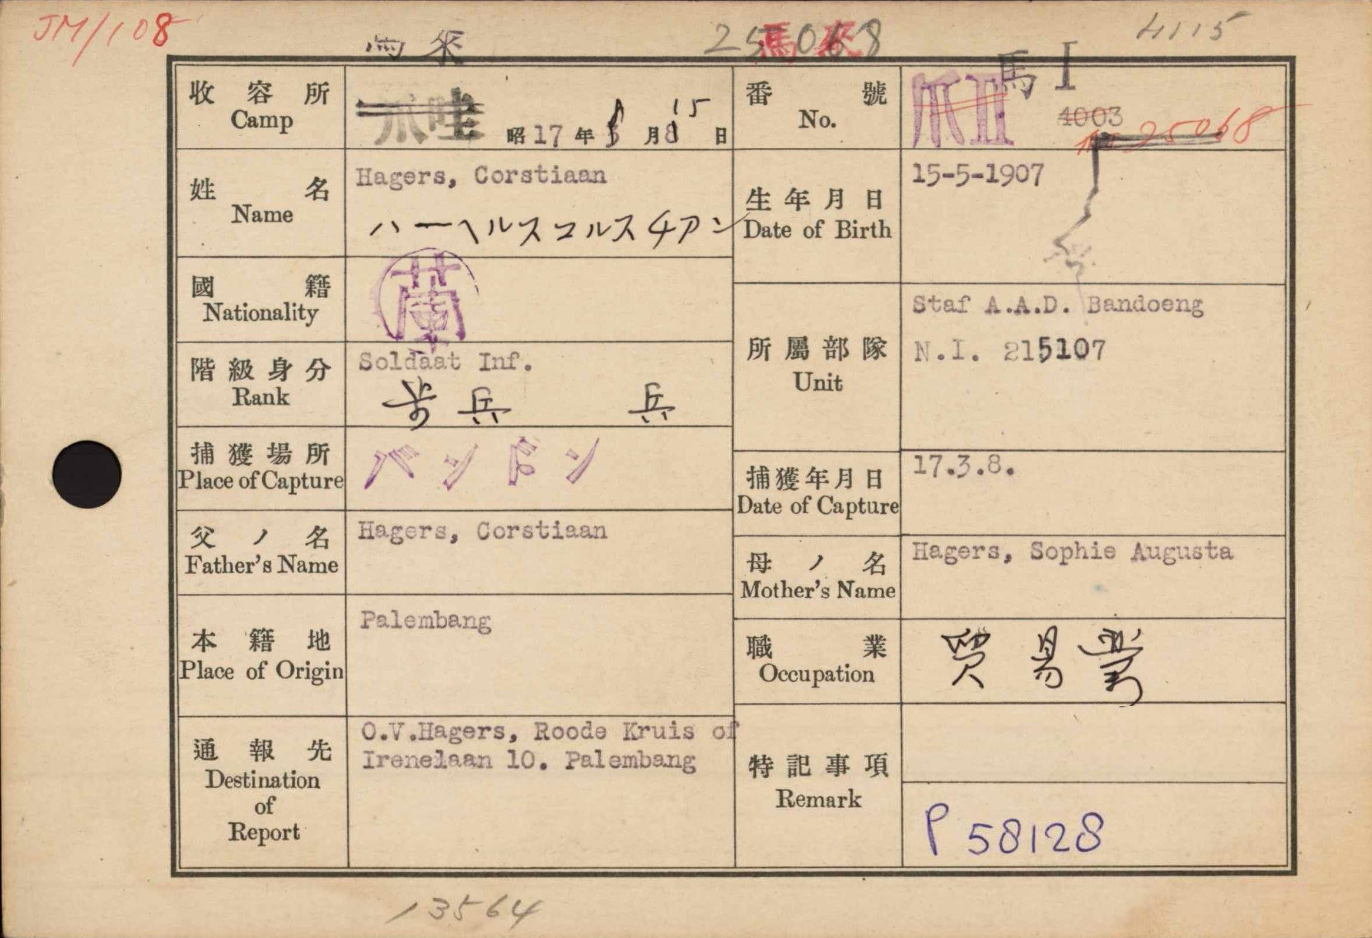 JM/108
馬來
25068
馬來
4115
收容所
Camp
爪哇
昭17年 8月15日
番號
No.
爪II
馬I
4003
25068
姓名
Name
Hagers, Corstiaan
ハーヘルスコルスチアン
生年月日
Date of Birth
15-5-1907
國籍
Nationality
蘭
階級身分
Rank
Soldaat Inf.
歩兵 兵
所屬部隊
Unit
Staf A.A.D. Bandoeng
N.I. 215107
捕獲場所
Place of Capture
バンドン
捕獲年月日
Date of Capture
17.3.8.
父ノ名
Father's Name
Hagers, Corstiaan
母ノ名
Mother's Name
Hagers, Sophie Augusta
本籍地
Place of Origin
Palembang
職業
Occupation
貿易業
通報先
Destination
of
Report
O.V.Hagers, Roode Kruis of
Irenelaan 10. Palembang
特記事項
Remark
P 58128
13564